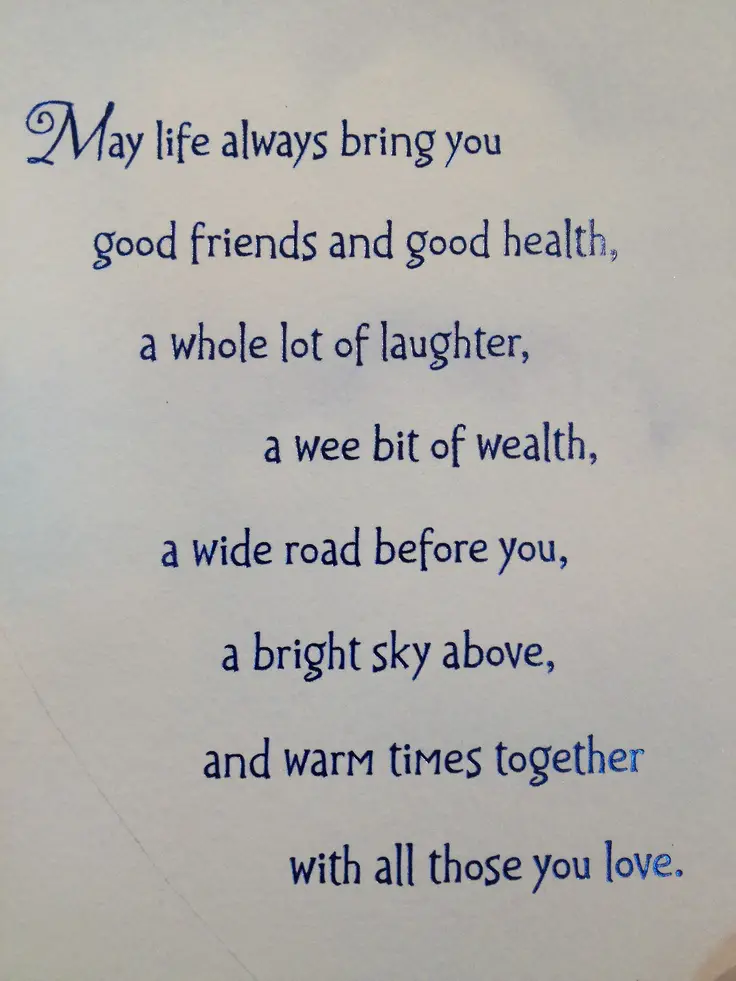 May life always bring you
good friends and good health,
a whole lot of laughter,
a wee bit of wealth,
a wide road before you,
a bright sky above,
and warm times together
with all those you love.